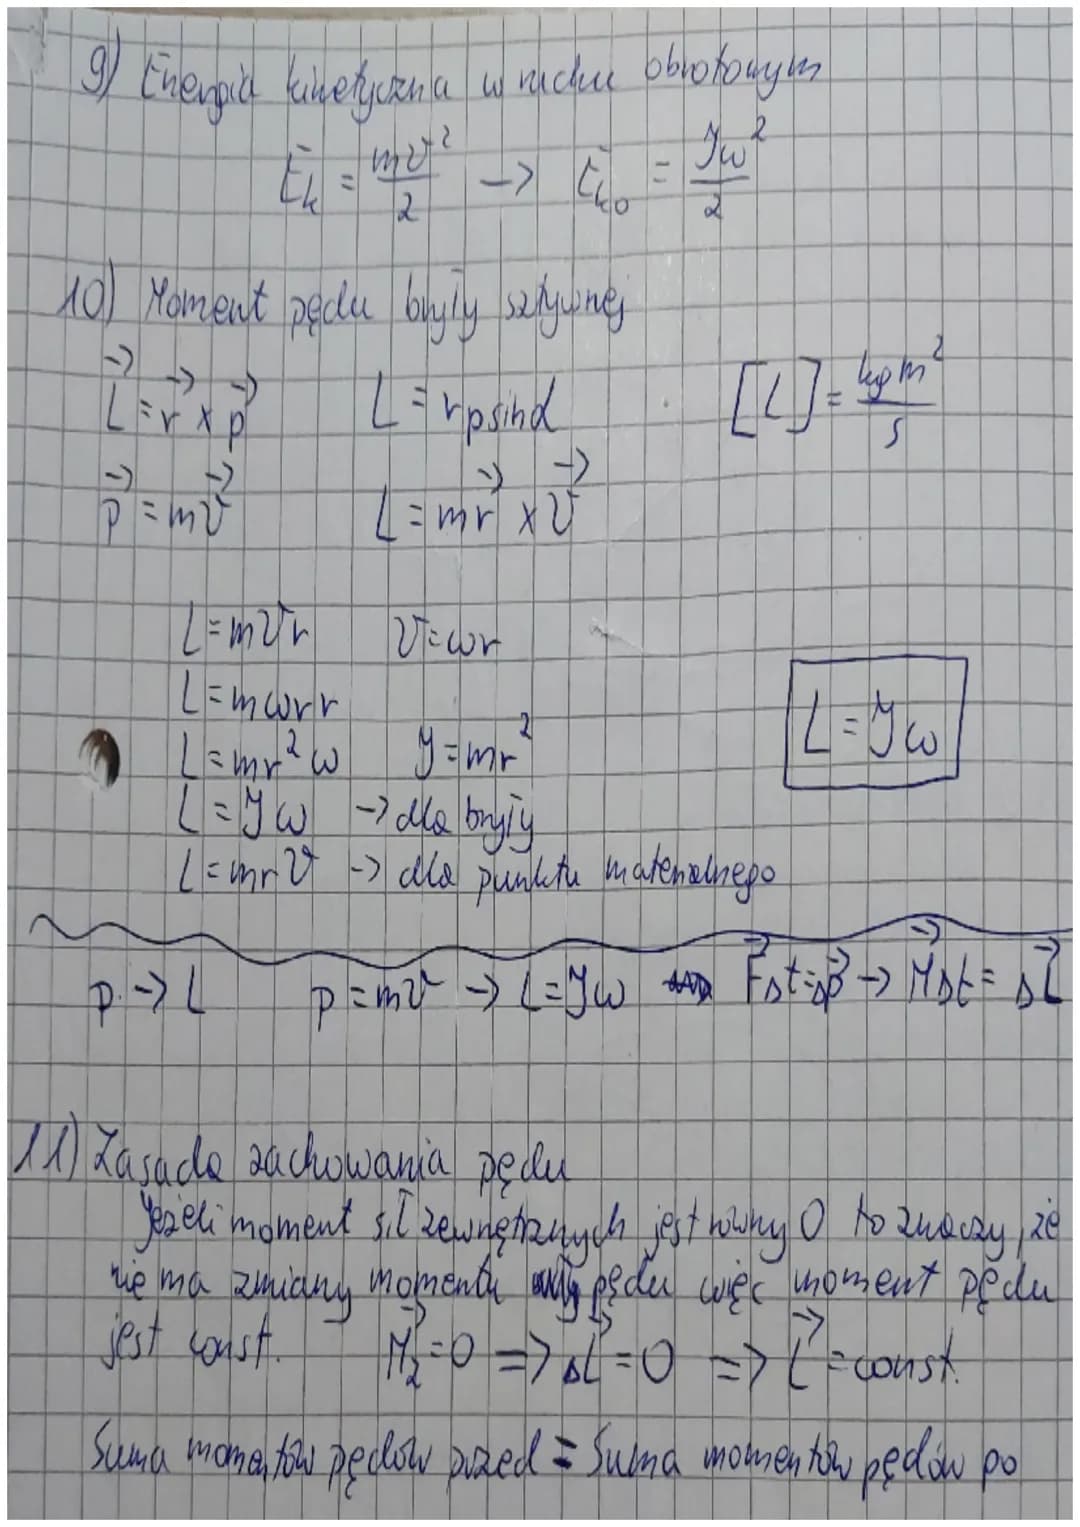 9) Energia kinetyczna w ruchu obrotowym
E_k = mv²/2 -> E_ko = Jω²/2
10) Moment pędu bryły sztywnej
L⃗ = r⃗ x p⃗ L = rp sinα [L] = kg m²/s
p⃗ = mv⃗ L = mr⃗ x v⃗
L = mvr v = ωr
L = mωrr
L = mr²ω J = mr²
L = Jω
L = Jω -> dla bryły
L = mrv -> dla punktu materialnego
p -> L p = mv -> L = Jω F⃗Δt = Δp⃗ -> M⃗Δt = ΔL⃗
11) Zasada zachowania pędu
Jeżeli moment sił zewnętrznych jest równy 0 to znaczy, że
nie ma zmiany momentu pędu więc moment pędu
jest const. M⃗_z = 0 => ΔL⃗ = 0 => L⃗ = const.
Suma momentów pędów przed = Suma momentów pędów po